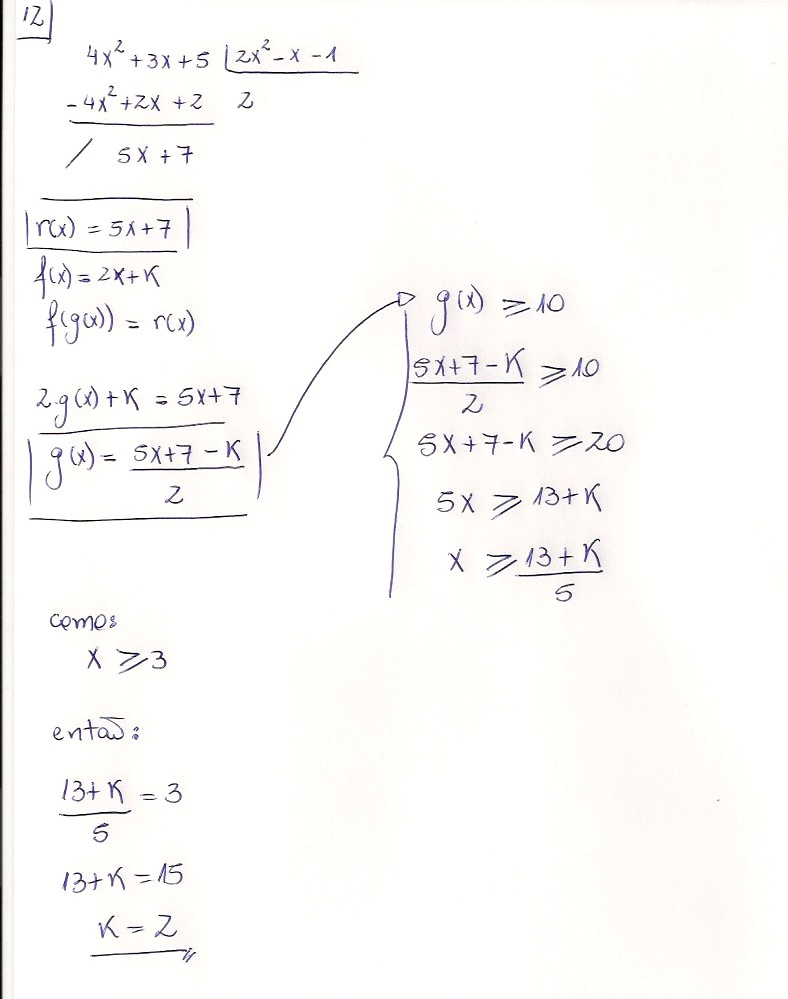 12
4x² + 3x + 5 | 2x² - x - 1
- 4x² + 2x + 2 2
/ 5x + 7
r(x) = 5x + 7
f(x) = 2x + K
f(g(x)) = r(x)
2.g(x) + K = 5x + 7
g(x) = (5x + 7 - K)/2
g(x) ⩾ 10
(5x + 7 - K)/2 ⩾ 10
5x + 7 - K ⩾ 20
5x ⩾ 13 + K
x ⩾ (13 + K)/5
como:
x ⩾ 3
então:
(13 + K)/5 = 3
13 + K = 15
K = 2